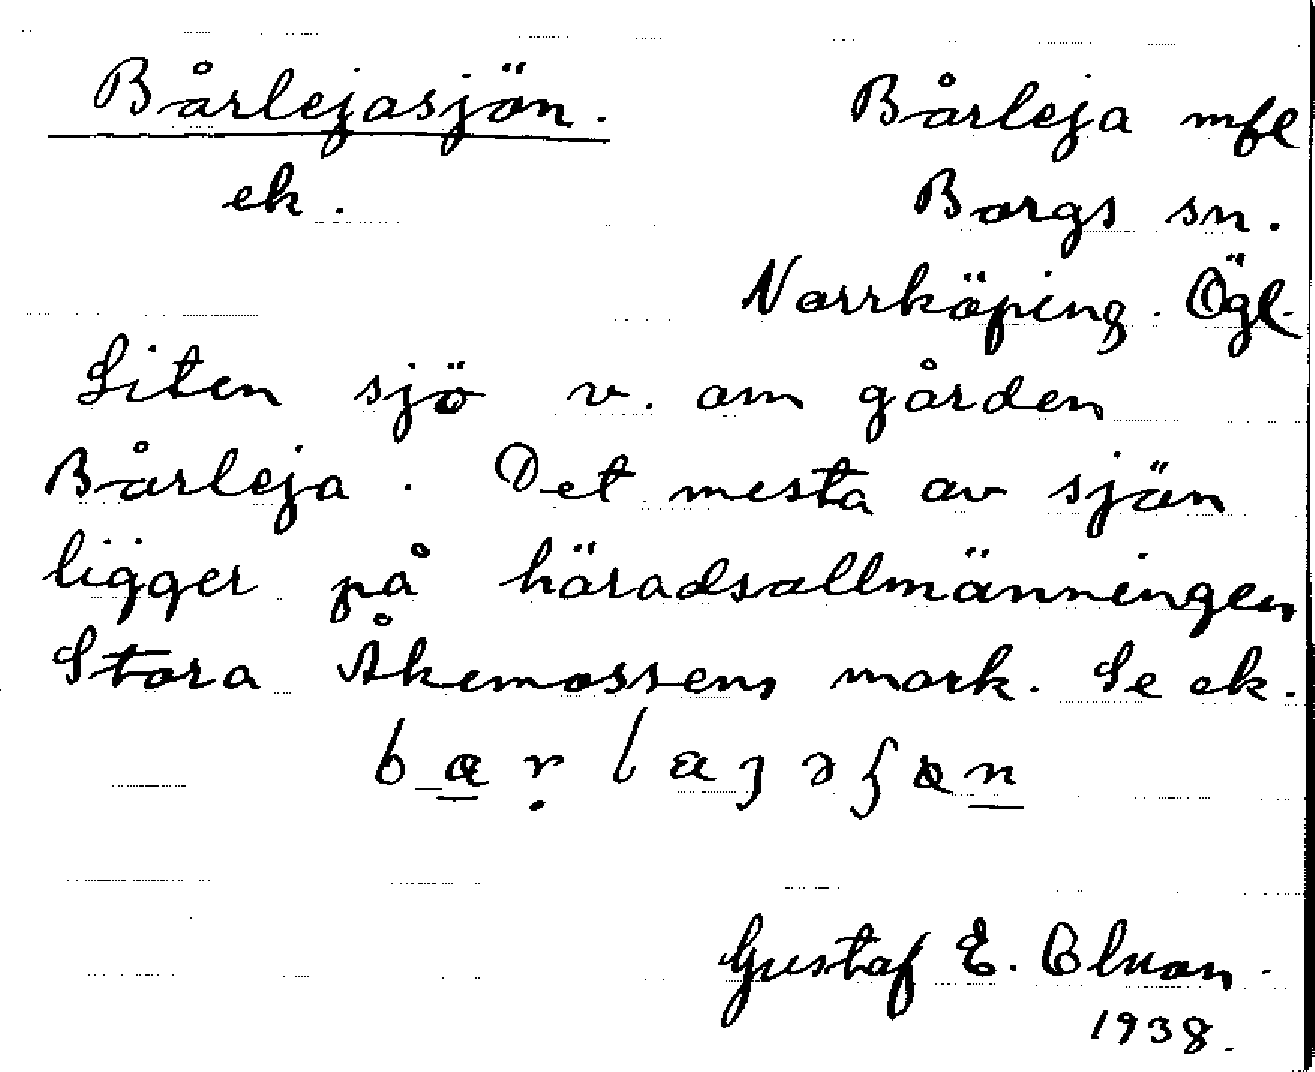 Bårlejasjön.
ek.
Bårleja mfl
Borgs sn.
Norrköping. Ögl.
Liten sjö v. om gården
Bårleja. Det mesta av sjön
ligger på häradsallmänningen
Stora Åkemossens mark. Se ek.
Gustaf E.
1938.